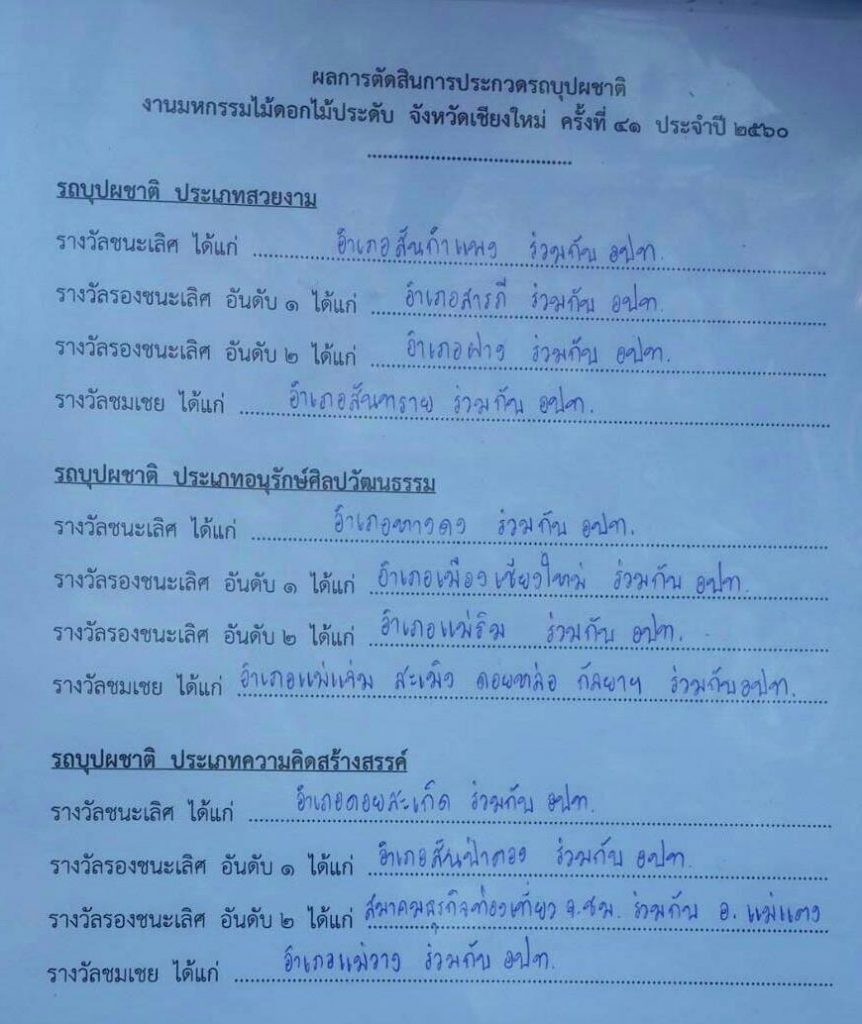 ผลการตัดสินการประกวดรถบุปผชาติ
งานมหกรรมไม้ดอกไม้ประดับ จังหวัดเชียงใหม่ ครั้งที่ ๔๑ ประจำปี ๒๕๖๐
รถบุปผชาติ ประเภทสวยงาม
รางวัลชนะเลิศ ได้แก่ อำเภอสันกำแพง ร่วมกับ อปท.
รางวัลรองชนะเลิศ อันดับ ๑ ได้แก่ อำเภอสารภี ร่วมกับ อปท.
รางวัลรองชนะเลิศ อันดับ ๒ ได้แก่ อำเภอฝาง ร่วมกับ อปท.
รางวัลชมเชย ได้แก่ อำเภอสันทราย ร่วมกับ อปท.
รถบุปผชาติ ประเภทอนุรักษ์ศิลปวัฒนธรรม
รางวัลชนะเลิศ ได้แก่ อำเภอหางดง ร่วมกับ อปท.
รางวัลรองชนะเลิศ อันดับ ๑ ได้แก่ อำเภอเมืองเชียงใหม่ ร่วมกับ อปท.
รางวัลรองชนะเลิศ อันดับ ๒ ได้แก่ อำเภอแม่ริม ร่วมกับ อปท.
รางวัลชมเชย ได้แก่ อำเภอแม่แจ่ม สะเมิง ดอยหล่อ กัลยาฯ ร่วมกับ อปท.
รถบุปผชาติ ประเภทความคิดสร้างสรรค์
รางวัลชนะเลิศ ได้แก่ อำเภอดอยสะเก็ด ร่วมกับ อปท.
รางวัลรองชนะเลิศ อันดับ ๑ ได้แก่ อำเภอสันป่าตอง ร่วมกับ อปท.
รางวัลรองชนะเลิศ อันดับ ๒ ได้แก่ สมาคมธุรกิจท่องเที่ยว จ.ชม. ร่วมกับ อ. แม่แตง
รางวัลชมเชย ได้แก่ อำเภอแม่วาง ร่วมกับ อปท.